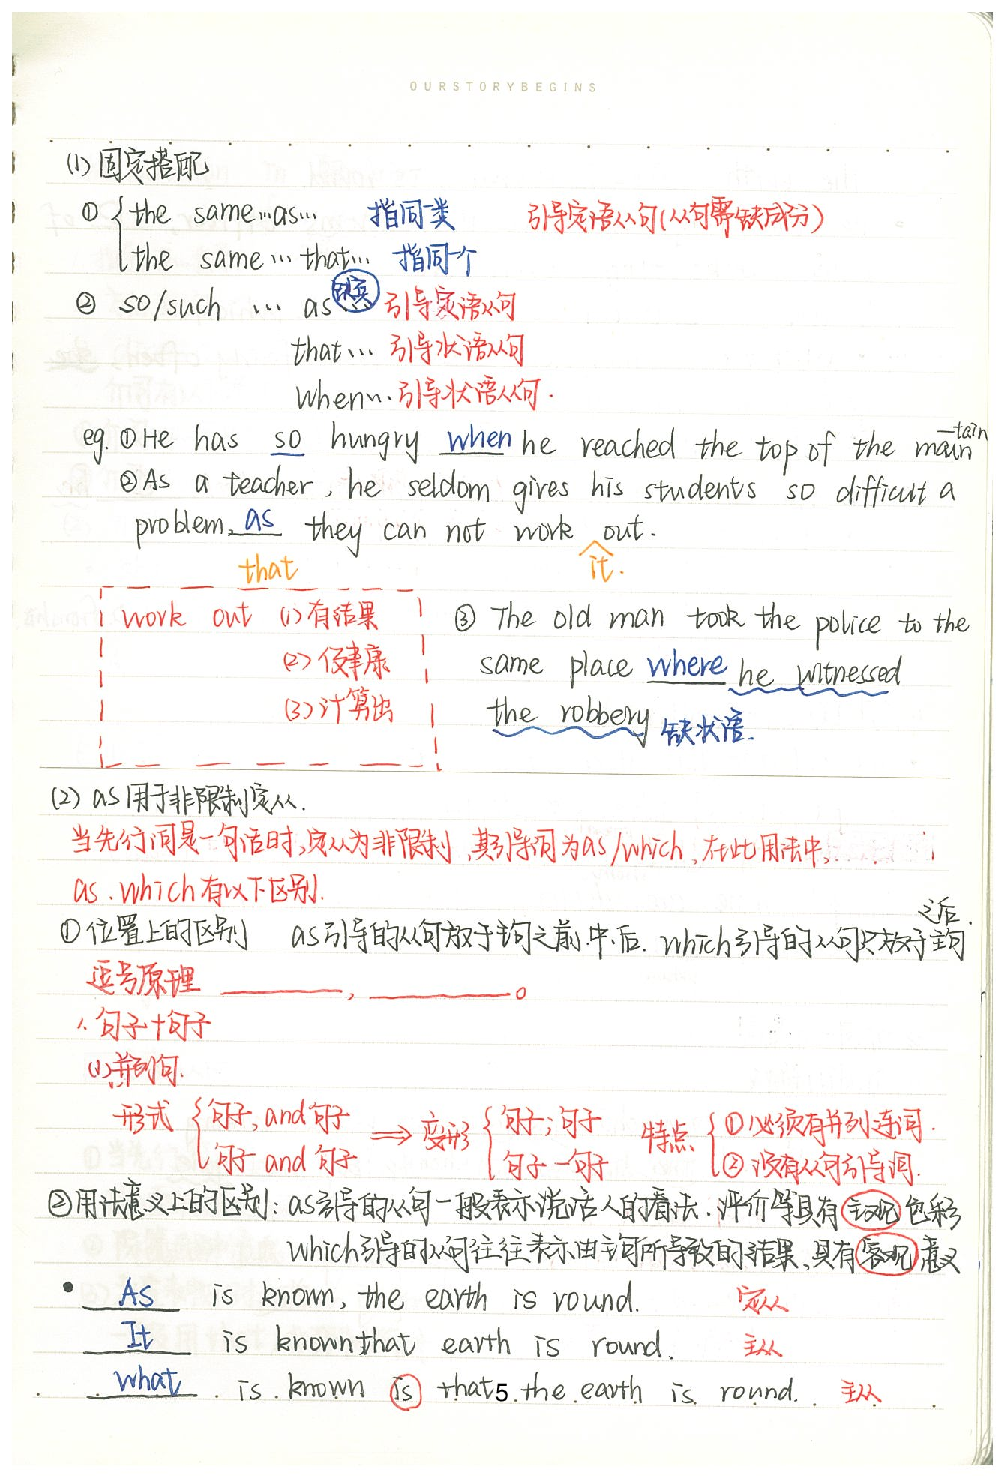 OURSTORYBEGINS
(1) 固定搭配
① the same…as… 指同类 引导定语从句(从句需缺成分)
the same … that… 指同个
② so/such … as … 引导定语从句
that… 引导状语从句
when… 引导状语从句.
eg. ① He has so hungry when he reached the top of the main
-tain
② As a teacher, he seldom gives his students so difficult a
problem, as they can not work out.
that it.
work out (1) 有结果
(2) 健康
(3) 计算出
③ The old man took the police to the
same place where he witnessed
the robbery 缺状语.
(2) as 用于非限制定从.
当先行词是一句话时,定从为非限制,其引导词为as/which,在此用法中,
as、which有以下区别.
① 位置上的区别 as引导的从句放于主句之前.中.后. which引导的从句只放于主句
之后.
逗号原理 ______, ______。
1. 句子+句子
(1) 并列句.
形式 句子, and 句子 ⇒ 变形 句子; 句子 特点 ① 必须有并列连词.
句子 and 句子 句子 — 句子 ② 没有从句引导词.
② 用法意义上的区别: as引导的从句一般表示说话人的看法.评价等具有主观色彩
which引导的从句往往表示由主句所导致的结果,具有客观意义
• As is known, the earth is round. 定从
It is known that earth is round. 主从
what is known is that the earth is round. 主从
5